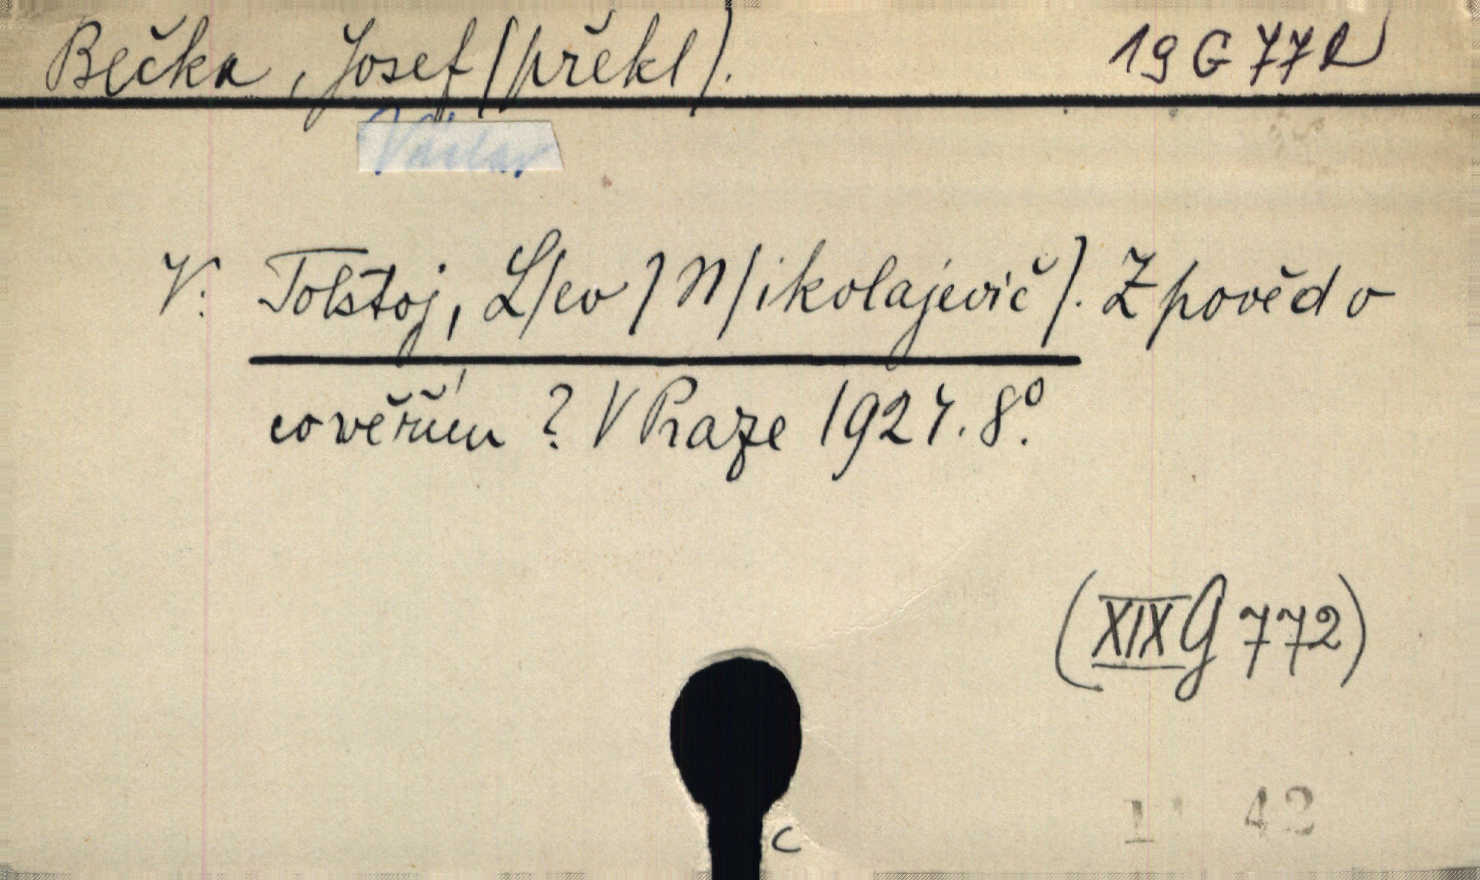 Bečka, Josef (překl). 19 G 772
Václav
V: Tolstoj, L/ev/ N/ikolajevič/. Zpověd o
co věřím? V Praze 1927. 8°.
(XIX G 772)
42
c